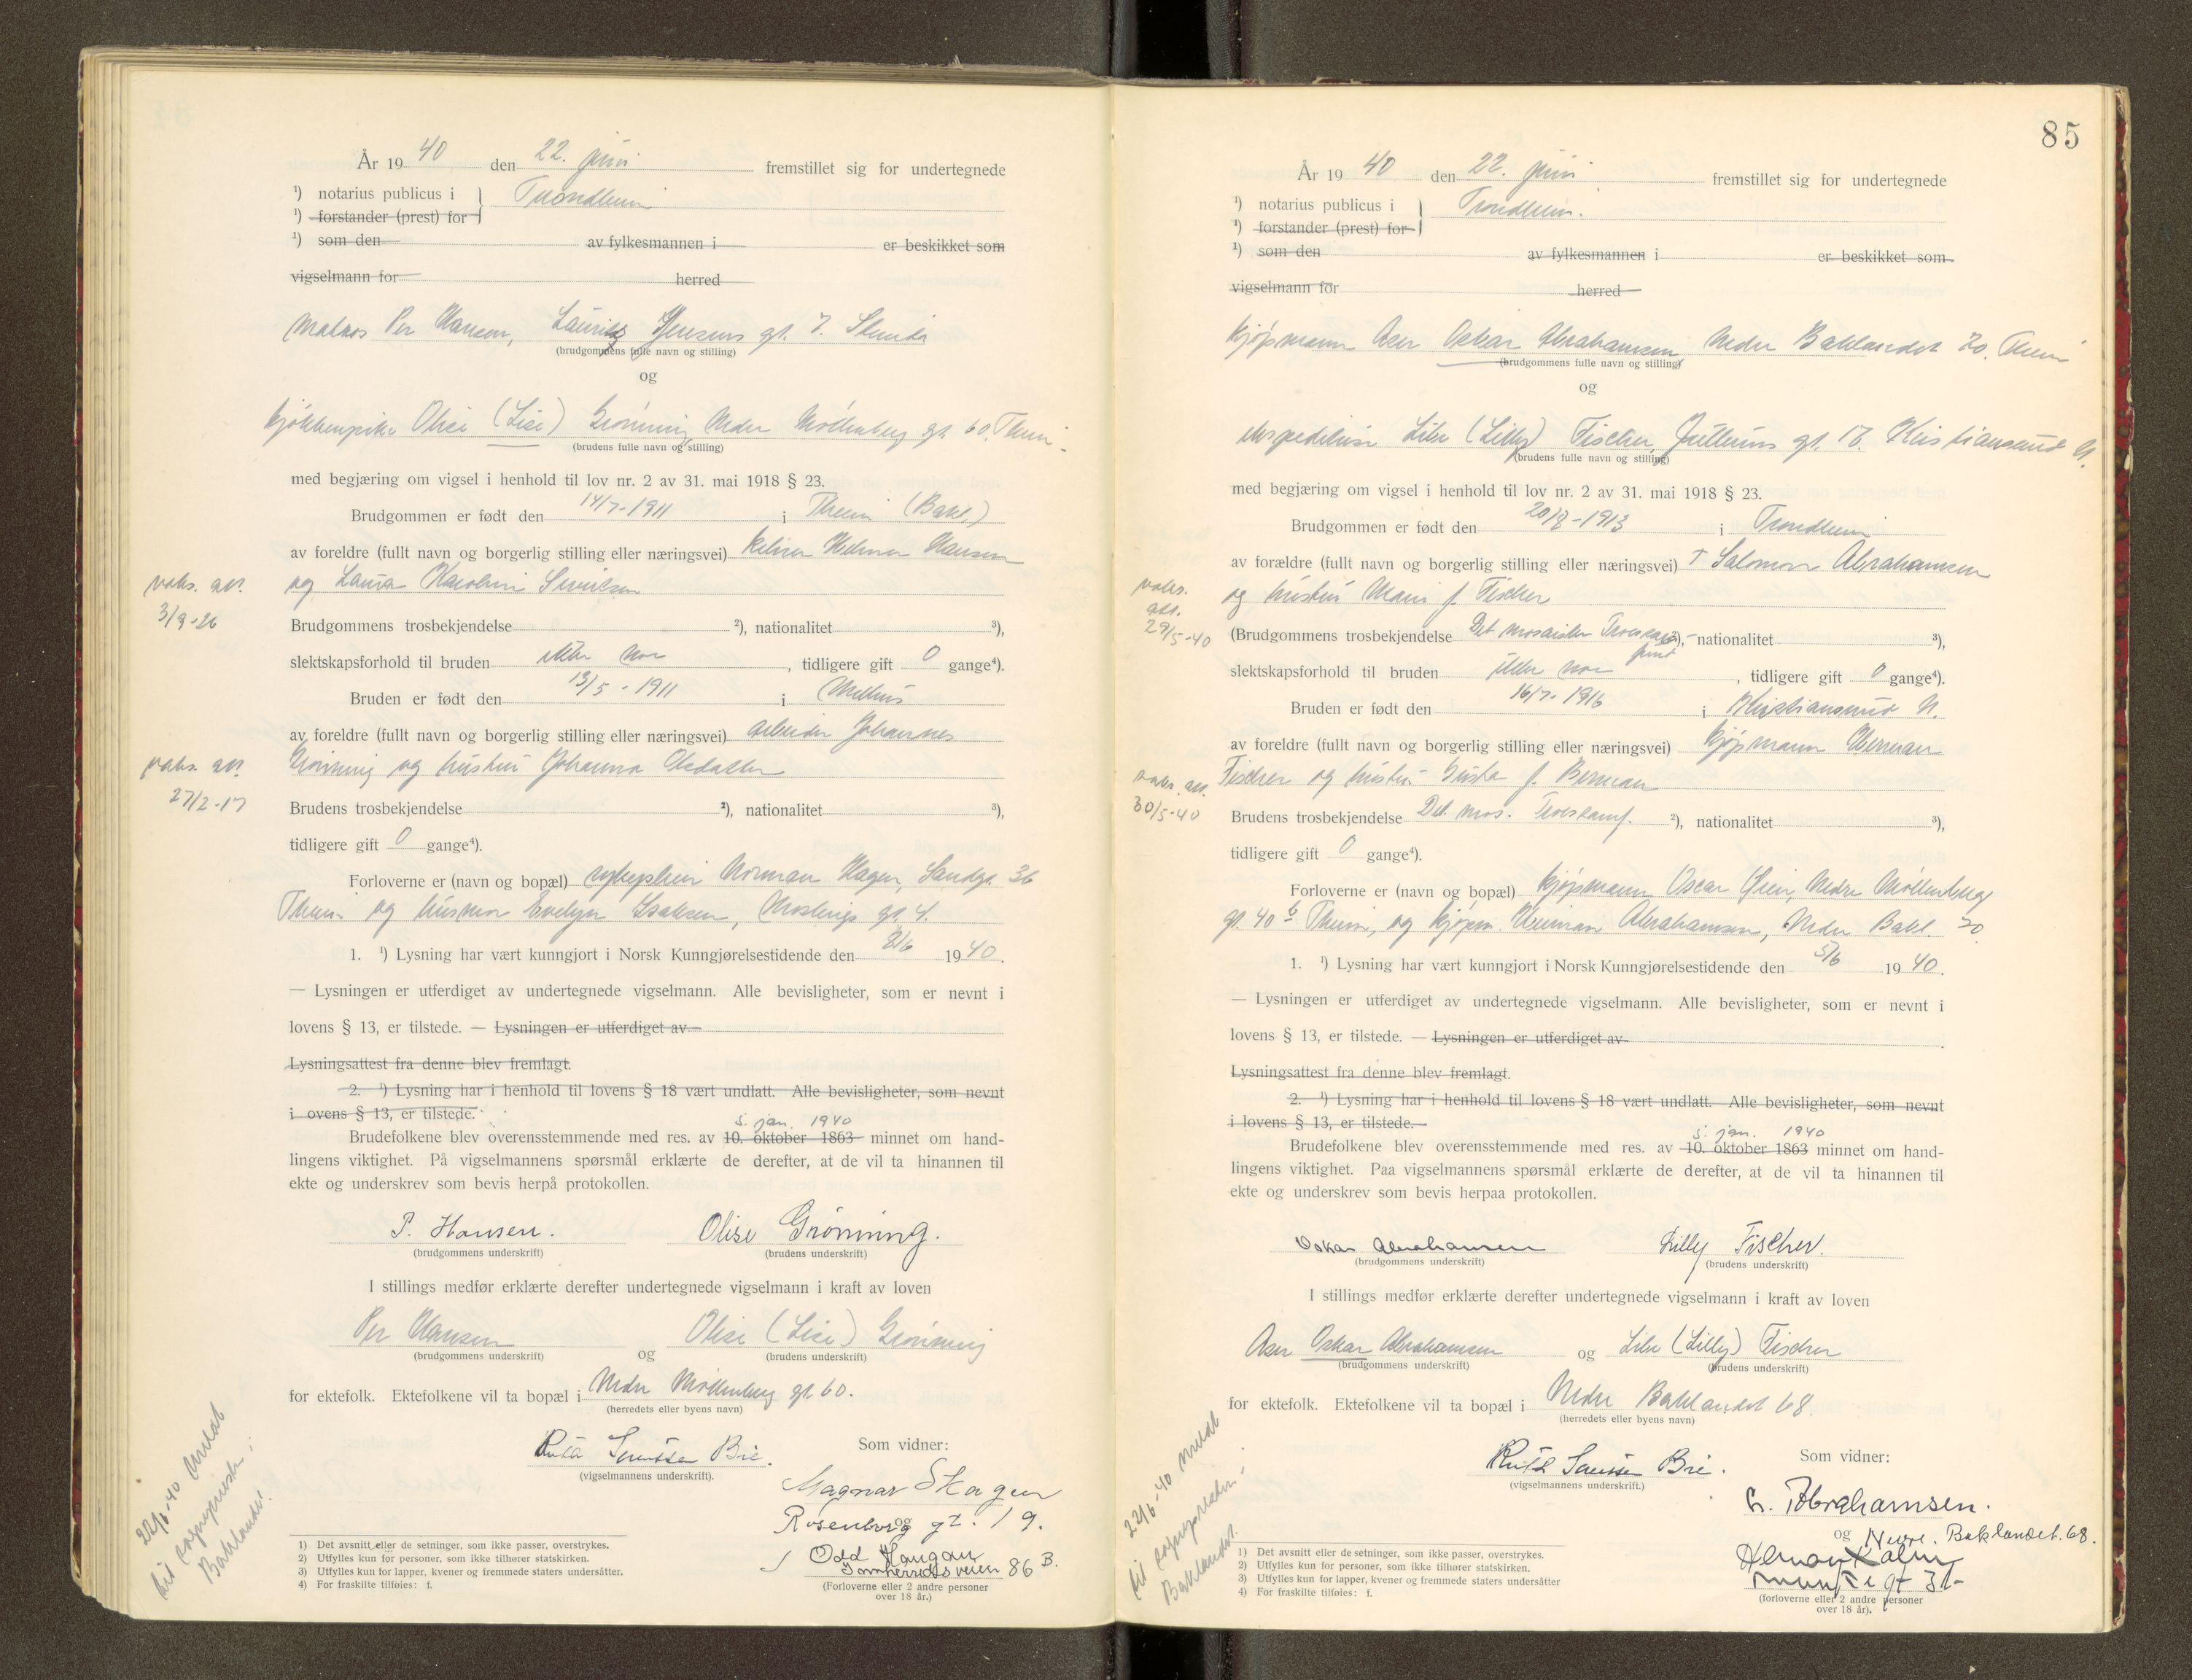 År 19 40 den 22. juni fremstillet sig for undertegnede
¹) notarius publicus i } Trondheim
¹) forstander (prest) for
¹) som den av fylkesmannen i er beskikket som
vigselmann for herred
Matros Per Hansen, Lauritz Jensens gt. 7.
(brudgommens fulle navn og stilling)
og
kjøkkenpike Olise (Lise) Grønning, Nedre Møllenberg gt. 60. Theim.
(brudens fulle navn og stilling)
med begjæring om vigsel i henhold til lov nr. 2 av 31. mai 1918 § 23.
Brudgommen er født den 14/7-1911 i Theim (Bakl.)
av foreldre (fullt navn og borgerlig stilling eller næringsvei) Hilmar Hansen
og Laura Karoline
vaks. att.
3/9-26
Brudgommens trosbekjendelse ²), nationalitet ³),
slektskapsforhold til bruden ikke noe, tidligere gift 0 gange⁴).
Bruden er født den 13/5-1911 i Melhus
av foreldre (fullt navn og borgerlig stilling eller næringsvei) arbeider Johannes
Grønning og hustru Johanna Olsdatter
vaks. att.
27/2-17
Brudens trosbekjendelse ²), nationalitet ³),
tidligere gift 0 gange⁴).
Forloverne er (navn og bopæl) Norman Hagen, Sandgt. 36
Theim og husmor Evelyn Isaksen, gt. 4.
1. ¹) Lysning har vært kunngjort i Norsk Kunngjørelsestidende den 8/6 1940.
— Lysningen er utferdiget av undertegnede vigselmann. Alle bevisligheter, som er nevnt i
lovens § 13, er tilstede. — Lysningen er utferdiget av
Lysningsattest fra denne blev fremlagt.
2. ¹) Lysning har i henhold til lovens § 18 vært undlatt. Alle bevisligheter, som nevnt
i ovens § 13, er tilstede.
5. jan. 1940
Brudefolkene blev overensstemmende med res. av 10. oktober 1863 minnet om hand-
lingens viktighet. På vigselmannens spørsmål erklærte de derefter, at de vil ta hinannen til
ekte og underskrev som bevis herpå protokollen.
P. Hansen. Olise Grønning.
(brudgommens underskrift) (brudens underskrift)
I stillings medfør erklærte derefter undertegnede vigselmann i kraft av loven
Per Hansen og Olise (Lise) Grønning
(brudgommens underskrift) (brudens underskrift)
for ektefolk. Ektefolkene vil ta bopæl i Nedre Møllenberg gt. 60.
(herredets eller byens navn)
Som vidner:
Ruth Smith Bie.
(vigselmannens underskrift).
Magnar Skagen
Rosenborg gt. 19.
og
Odd Haugan
Innherredsveien 86 B.
(Forloverne eller 2 andre personer
over 18 år.)
22/6-40 meldt
til sognepresten i
Baklandet.
1) Det avsnitt eller de setninger, som ikke passer, overstrykes.
2) Utfylles kun for personer, som ikke tilhører statskirken.
3) Utfylles kun for lapper, kvener og fremmede staters undersåtter.
4) For fraskilte tilføies: f.
85
År 19 40 den 22. juni fremstillet sig for undertegnede
¹) notarius publicus i } Trondheim.
¹) forstander (prest) for
¹) som den av fylkesmannen i er beskikket som
vigselmann for herred
kjøpmann Aser Oskar Abrahamsen Nedre Baklandet 70. Theim
(brudgommens fulle navn og stilling)
og
ekspeditrise Libe (Lilly) Fischer, gt. 17. Kristiansund N.
(brudens fulle navn og stilling)
med begjæring om vigsel i henhold til lov nr. 2 av 31. mai 1918 § 23.
Brudgommen er født den 20/8-1913 i Trondheim
av forældre (fullt navn og borgerlig stilling eller næringsvei) † Salomon Abrahamsen
og hustru Mari f. Fischer
vaks.
att.
29/5-40
(Brudgommens trosbekjendelse Det mosaiske Trossamfund ²), nationalitet ³),
slektskapsforhold til bruden ikke noe, tidligere gift 0 gange⁴).
Bruden er født den 16/7-1916 i Kristiansund N.
av foreldre (fullt navn og borgerlig stilling eller næringsvei) kjøpmann Herman
Fischer og hustru Gusta f. Berman
vaks. att.
30/5-40
Brudens trosbekjendelse Det mos. Trossamf. ²), nationalitet ³),
tidligere gift 0 gange⁴).
Forloverne er (navn og bopæl) kjøpmann Oscar Nedre Møllenberg
gt. 40 b Theim, og kjøpm. Heiman Abrahamsen, Nedre Bakl. 70
1. ¹) Lysning har vært kunngjort i Norsk Kunngjørelsestidende den 5/6 1940.
— Lysningen er utferdiget av undertegnede vigselmann. Alle bevisligheter, som er nevnt i
lovens § 13, er tilstede. — Lysningen er utferdiget av
Lysningsattest fra denne blev fremlagt.
2. ¹) Lysning har i henhold til lovens § 18 vært undlatt. Alle bevisligheter, som nevnt
i lovens § 13, er tilstede.
5. jan. 1940
Brudefolkene blev overensstemmende med res. av 10. oktober 1863 minnet om hand-
lingens viktighet. Paa vigselmannens spørsmål erklærte de derefter, at de vil ta hinannen til
ekte og underskrev som bevis herpaa protokollen.
Oskar Abrahamsen Lilly Fischer.
(brudgommens underskrift) (brudens underskrift)
I stillings medfør erklærte derefter undertegnede vigselmann i kraft av loven
Aser Oskar Abrahamsen og Libe (Lilly) Fischer
(brudgommens underskrift) (brudens underskrift)
for ektefolk. Ektefolkene vil ta bopæl i Nedre Baklandet 68.
(herredets eller byens navn)
Som vidner:
Ruth Smith Bie.
(vigselmannens underskrift.)
H. Abrahamsen.
og Nedre. Baklandet. 68.
Herman Kahn
gt 31
(forloverne eller 2 andre personer
over 18 år).
22/6-40 meldt
til sognepresten i
Baklandet.
1) Det avsnitt eller de setninger, som ikke passer, overstrykes.
2) Utfylles kun for personer, som ikke tilhører statskirken.
3) Utfylles kun for lapper, kvener og fremmede staters undersåtter
4) For fraskilte tilføies: f.